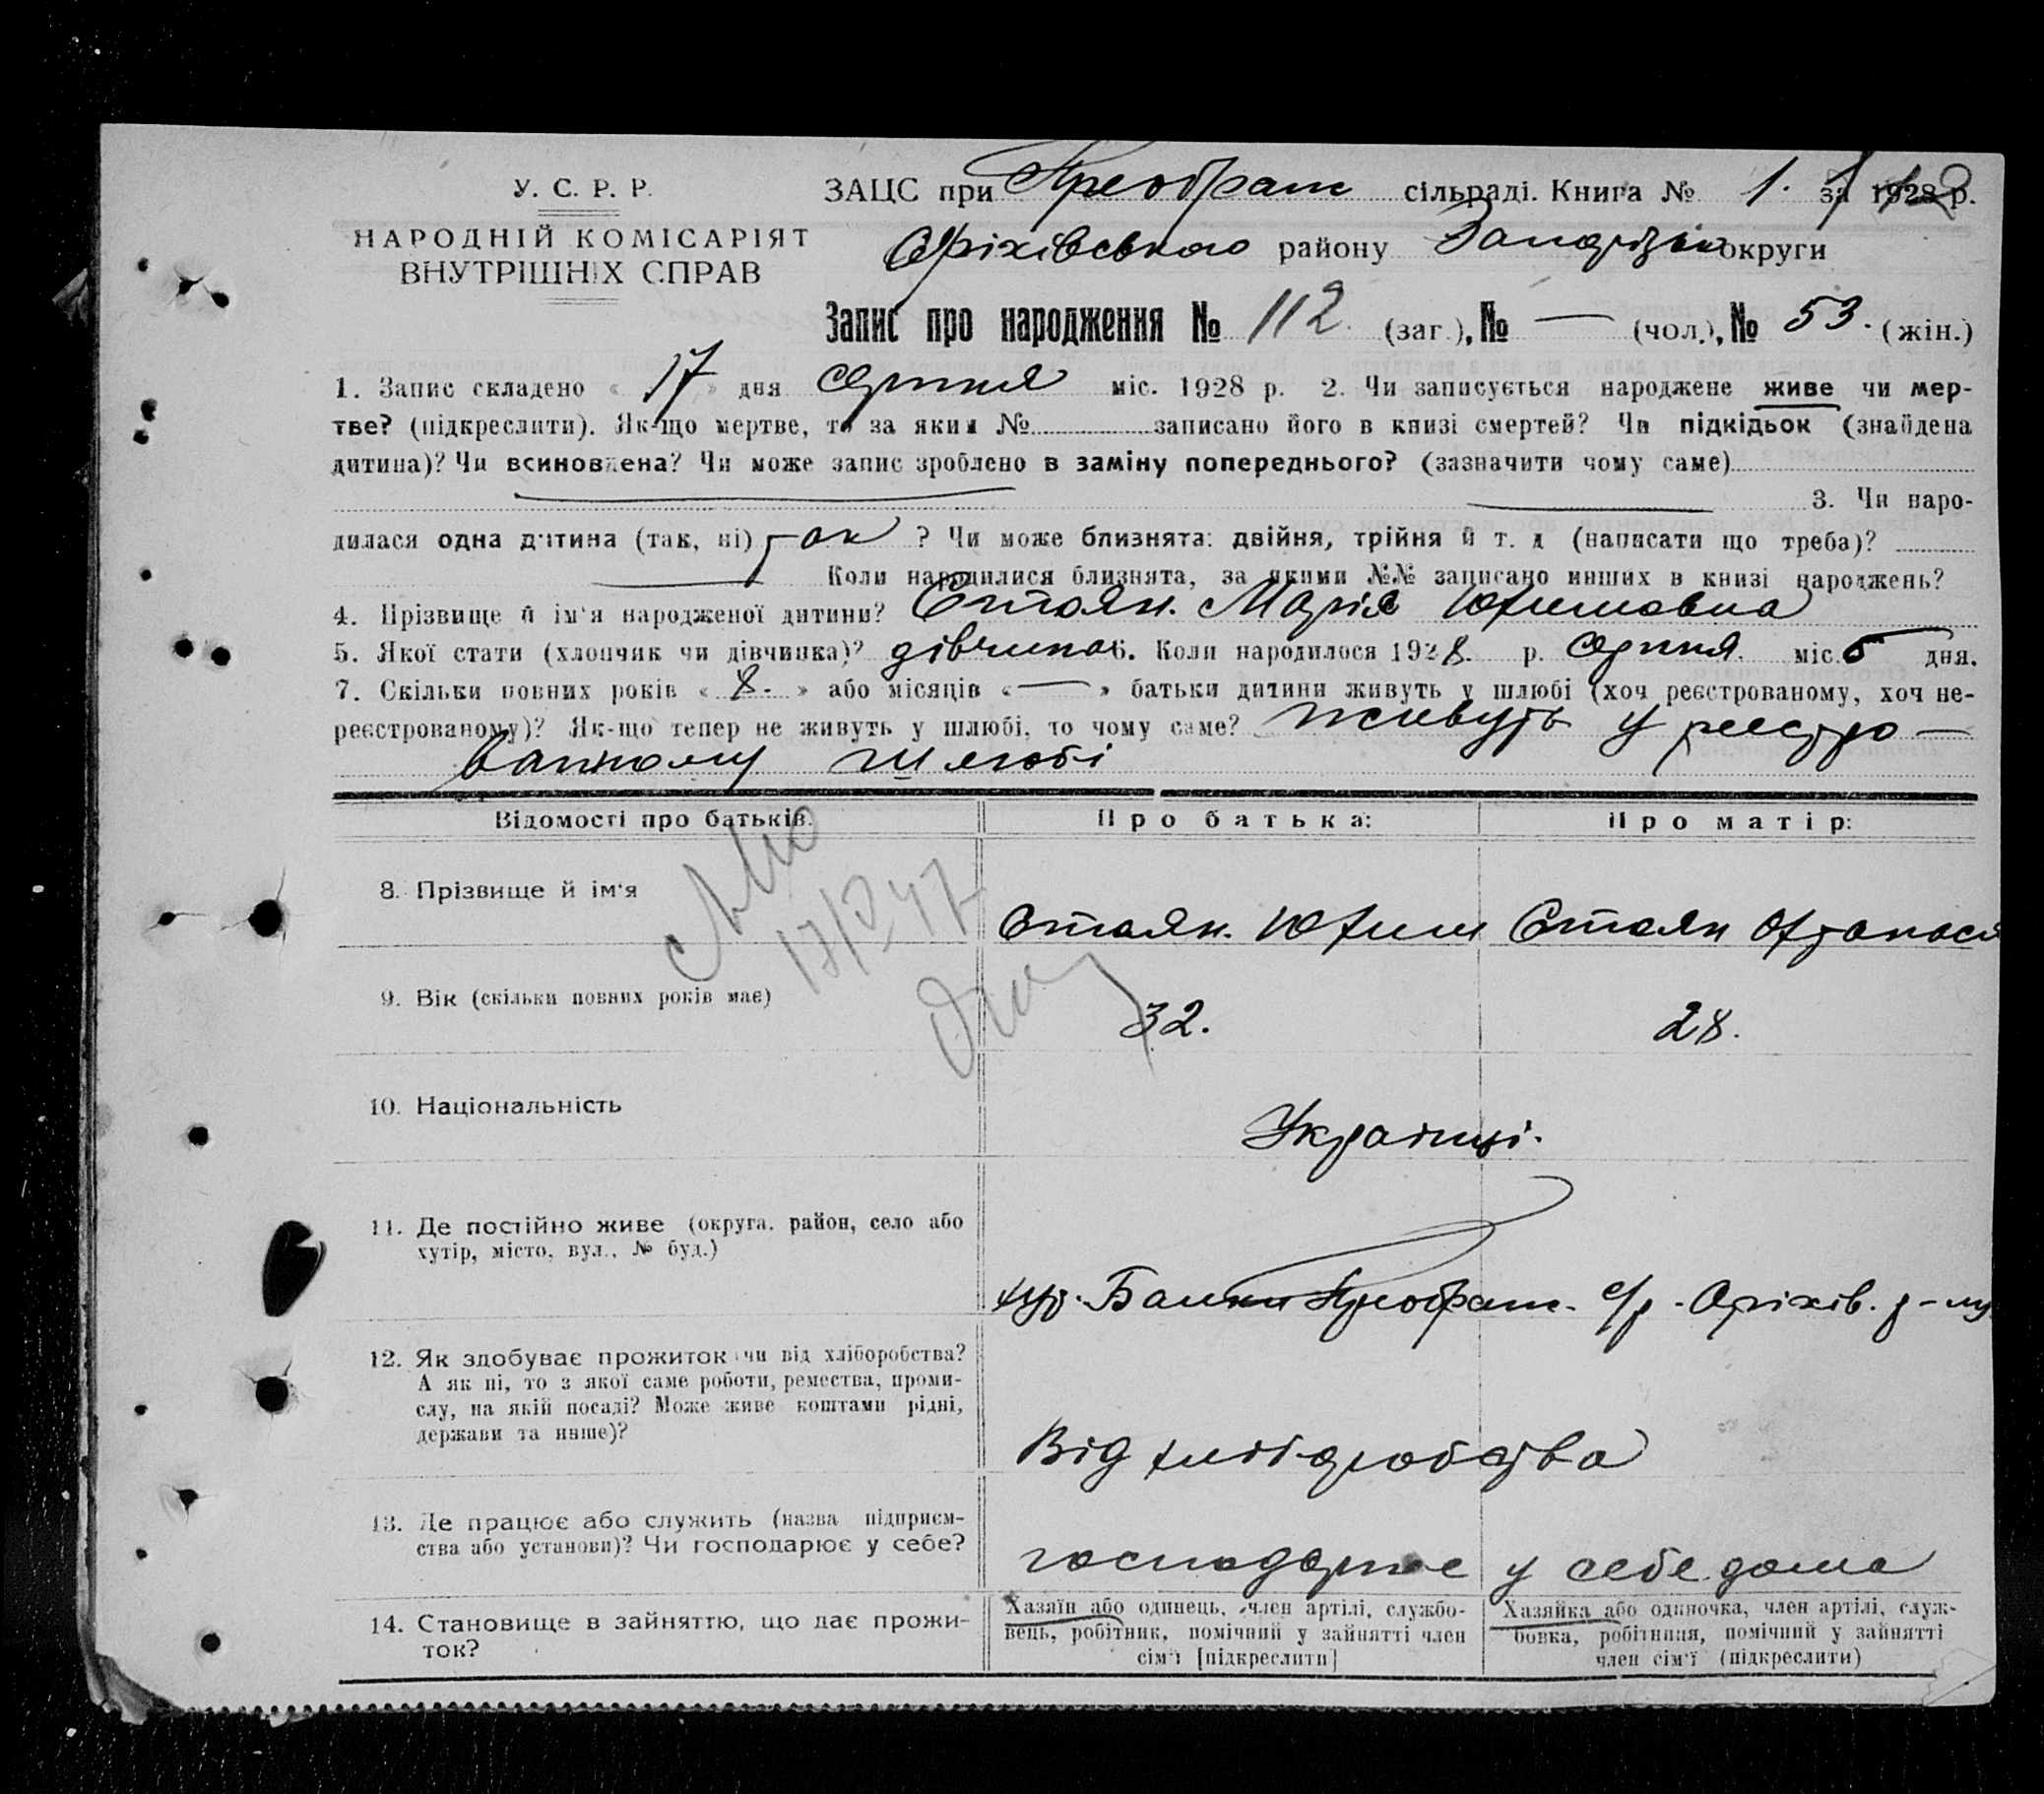 У. С. Р. Р.
НАРОДНІЙ КОМІСАРІЯТ
ВНУТРІШНІХ СПРАВ
ЗАЦС при Преображ сільраді. Книга № 1. за 1928 р.
Оріхівського району округи
Запис про народження № 112 (заг.), № — (чол.), № 53. (жін.)
1. Запис складено « 17 » дня серпня міс. 1928 р. 2. Чи записується народжене живе чи мер-
тве? (підкреслити). Як-що мертве, то за яким № записано його в книзі смертей? Чи підкідьок (знайдена
дитина)? Чи всиновлена? Чи може запис зроблено в заміну попереднього? (зазначити чому саме)
3. Чи наро-
дилася одна дитина (так, ні) так ? Чи може близнята: двійня, трійня й т. д (написати що треба)?
Коли народилися близнята, за якими №№ записано инших в книзі народжень?
4. Прізвище й ім'я народженої дитини? Стоян. Марія Юхимовна
5. Якої стати (хлопчик чи дівчинка)? дівчина 6. Коли народилося 1928. р. серпня. міс. 5 дня.
7. Скільки повних років « 8. » або місяців « — » батьки дитини живуть у шлюбі (хоч реєстрованому, хоч не-
реєстрованому)? Як-що тепер не живуть у шлюбі, то чому саме? живуть у реєстро-
ванному шлюбі
Відомості про батьків. Про батька: Про матір:
8. Прізвище й ім'я
Стоян. Юхим Стоян
9. Вік (скільки повних років має)
32. 28.
10. Національність
Українці.
11. Де постійно живе (округа, район, село або
хутір, місто, вул., № буд.)
хут. Преображ. с/р. Оріхів. р-ну
12. Як здобуває прожиток чи від хліборобства?
А як ні, то з якої саме роботи, ремества, проми-
слу, на якій посаді? Може живе коштами рідні,
держави та инше)?
Від хліборобства
13. Де працює або служить (назва підприєм-
ства або установи)? Чи господарює у себе?
господарює у себе дома
14. Становище в зайняттю, що дає прожи-
ток?
Хазяїн або одинець, член артілі, службо-
вець, робітник, помічний у зайнятті член
сім'ї [підкреслити]
Хазяйка або одиночка, член артілі, служ-
бовка, робітниця, помічний у зайнятті
член сім'ї (підкреслити)